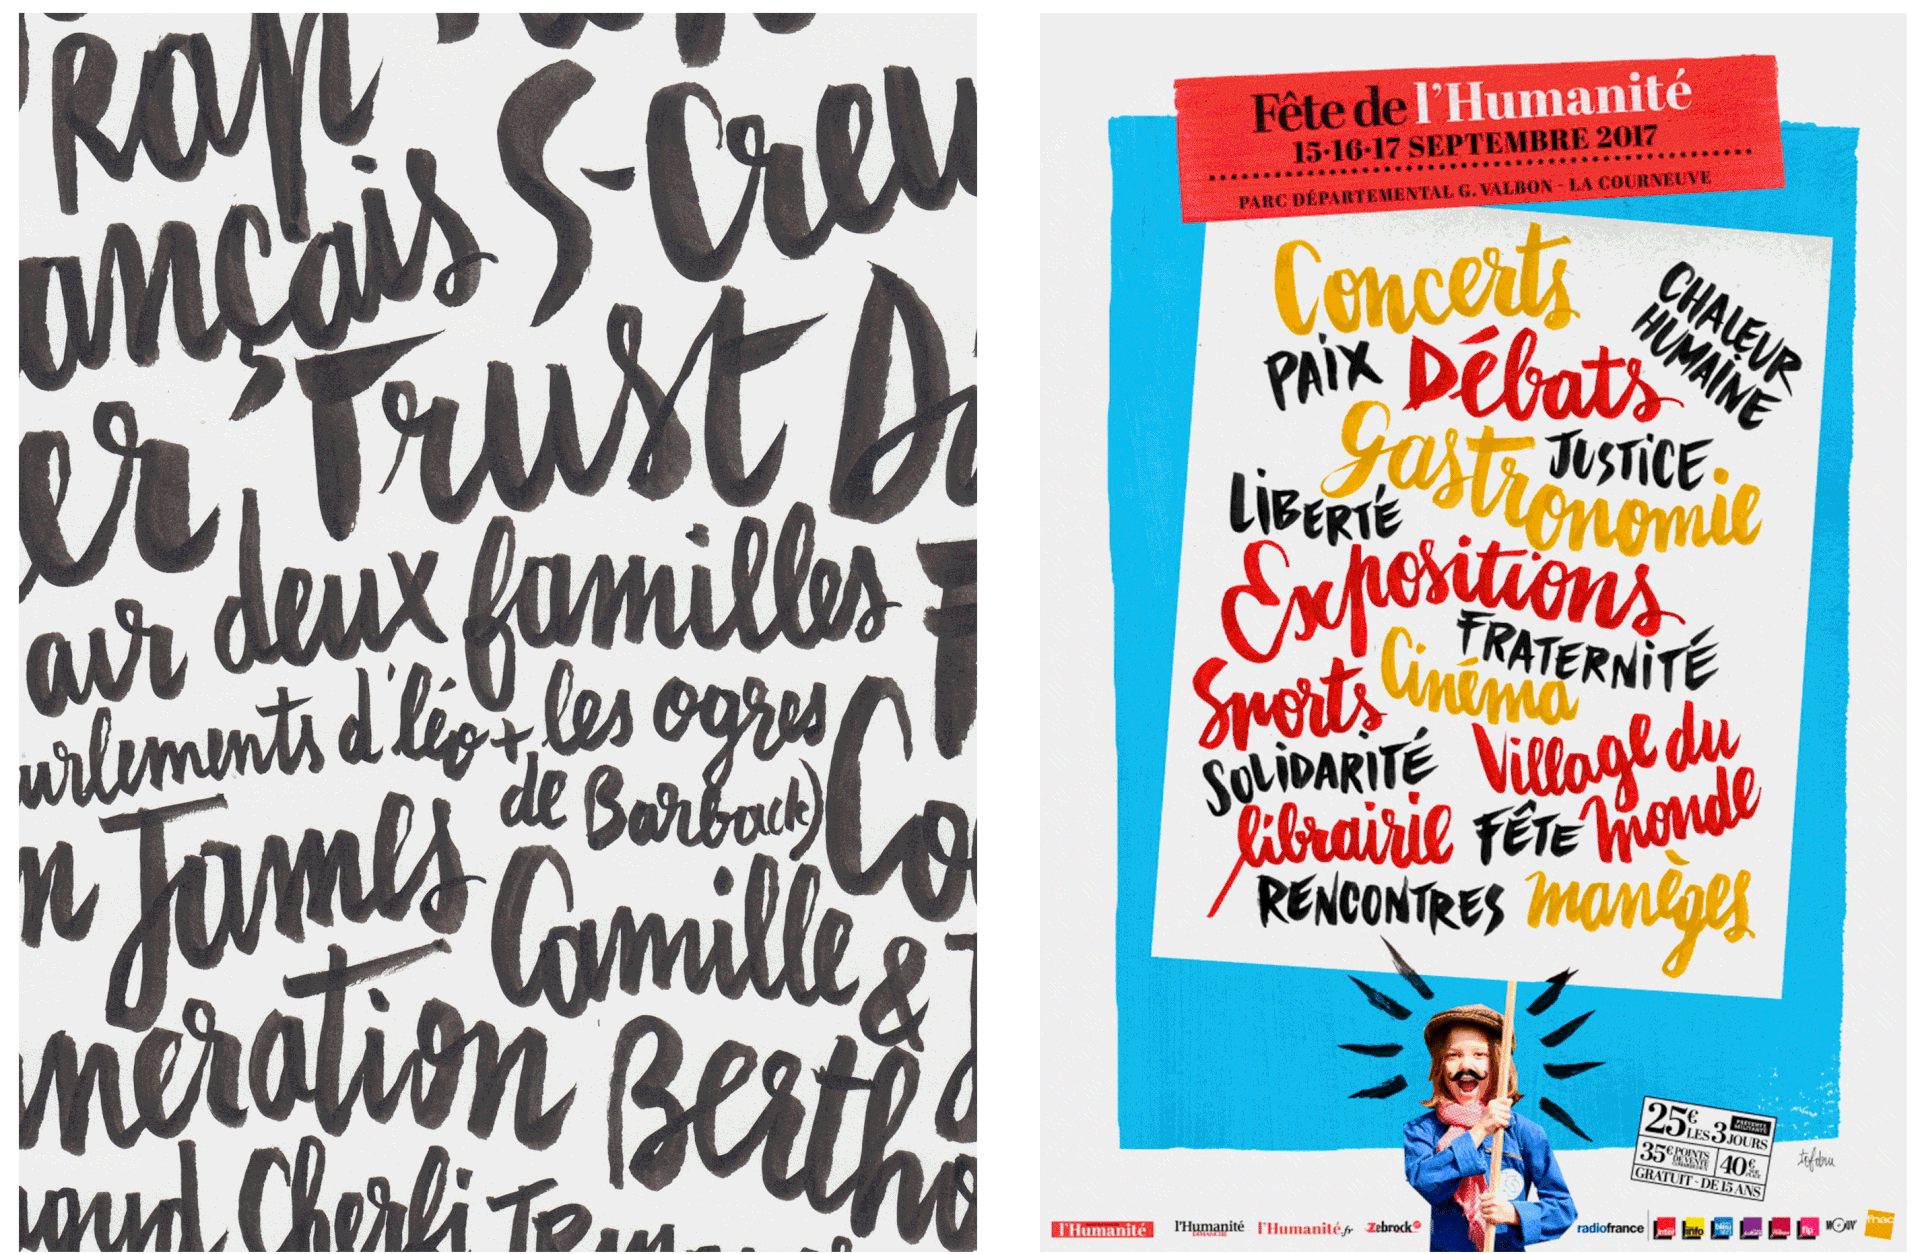 Trap
ançais S-Crew
er Trust
air deux familles
urlements d'léo + les ogres
de Barback)
James
Camille &
neration
Bertho
Cherfi
Fête de l'Humanité
15·16·17 SEPTEMBRE 2017
PARC DÉPARTEMENTAL G. VALBON - LA COURNEUVE
Concerts
CHALEUR
HUMAINE
PAIX Débats
Gastronomie
JUSTICE
LIBERTÉ
Expositions
FRATERNITÉ
Sports Cinéma
SOLIDARITÉ
Village du
Monde
librairie FÊTE
RENCONTRES manèges
25€ LES 3 JOURS
35€ POINTS DE VENTE
40€
GRATUIT - DE 15 ANS
tofdru
l'Humanité
l'Humanité DIMANCHE
l'Humanité.fr
Zebrock
radiofrance
inter
info
bleu
fip
MOUV'
fnac